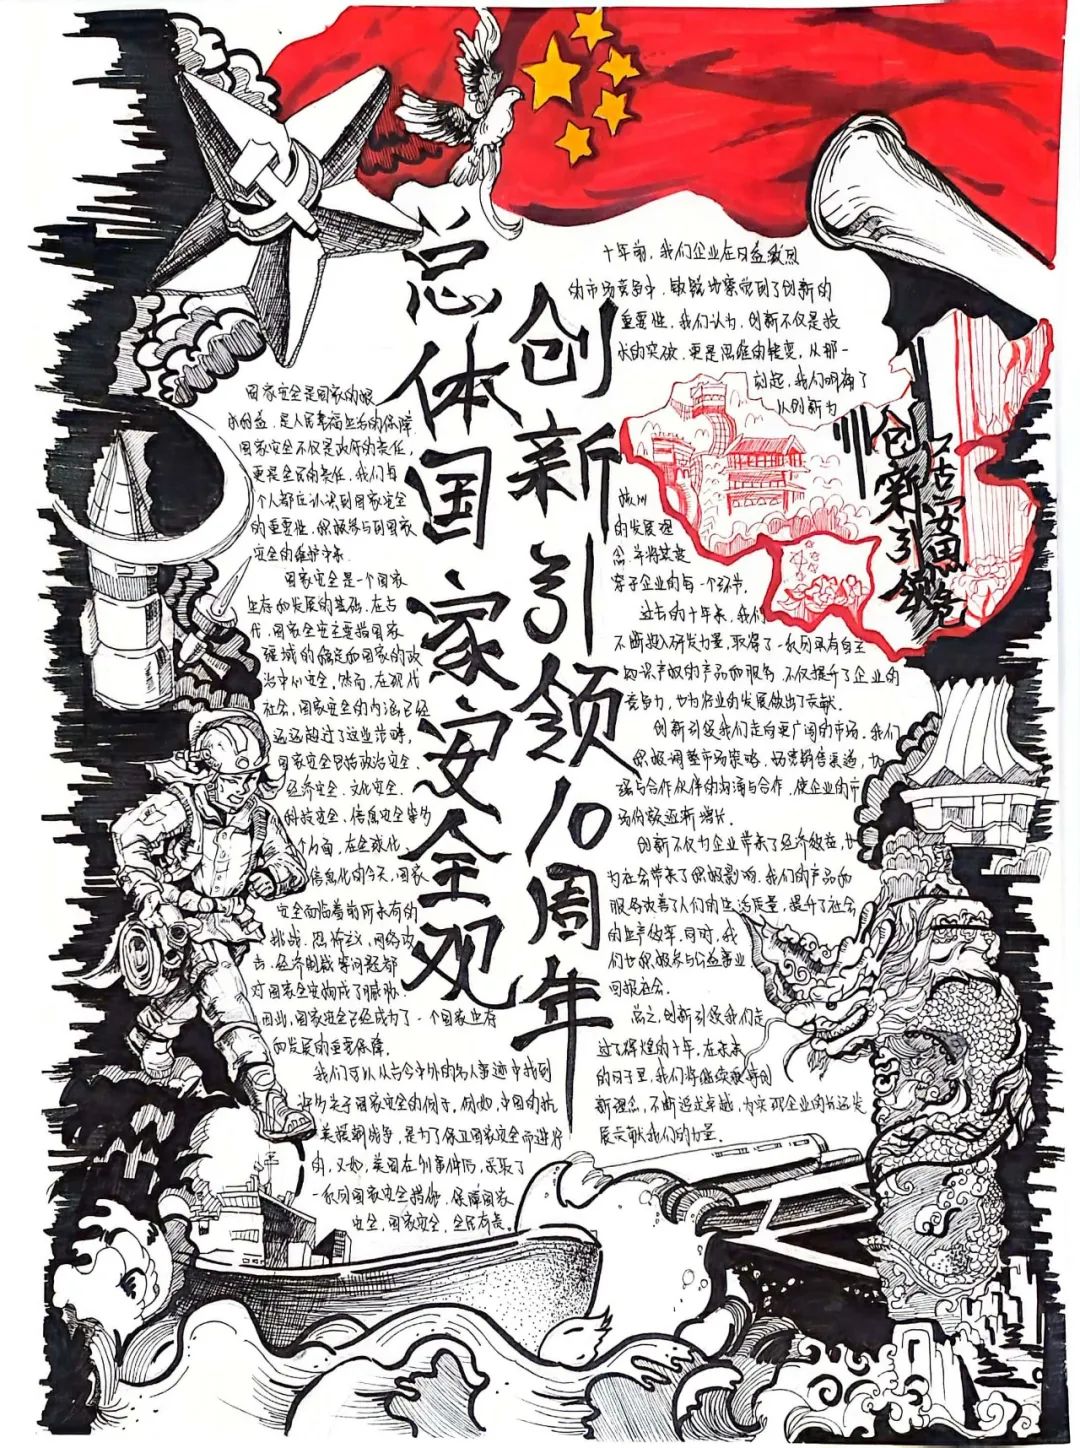 总体国家安全观
创新引领10周年
国家安全是国家的根
本利益，是人民幸福生活的保障，
国家安全不仅是政府的责任，
更是全民的责任，我们每
个人都应认识到国家安全
的重要性，积极参与到国家
安全的维护中来．
国家安全是一个国家
生存和发展的基础．在古
代，国家安全主要指国家
疆域的稳定和国家的政
治中心安全．然而，在现代
社会，国家安全的内涵已经
远远超过了这些范畴，
国家安全包括政治安全、
经济安全、文化安全、
科技安全、信息安全等多
个方面，在全球化、
信息化的今天，国家
安全面临着前所未有的
挑战．恐怖主义，网络攻
击、经济制裁等问题都
对国家安全构成了威胁．
因此，国家安全已经成为了一个国家生存
和发展的重要保障．
我们可以从古今中外的名人事迹中找到
许多关于国家安全的例子．例如，中国的抗
美援朝战争，是为了保卫国家安全而进行
的．又如，美国在911事件后，采取了
一系列国家安全措施，保障国家
安全．国家安全，全民有责。
十年前，我们企业在日益激烈
的市场竞争中，敏锐地察觉到了创新的
重要性．我们认为，创新不仅是技
术的突破，更是思维的转变，从那一
刻起，我们明确了
以创新为
的发展理
念，并将其贯
穿于企业的每一个环节．
过去的十年来，我们
不断投入研发力量，取得了一系列具有自主
知识产权的产品和服务．不仅提升了企业的
竞争力，也为行业的发展做出了贡献．
创新引领我们走向更广阔的市场，我们
积极调整市场策略，拓宽销售渠道，加
强与合作伙伴的沟通与合作，使企业的市
场份额逐渐增长．
创新不仅为企业带来了经济效益，也
为社会带来了积极影响．我们的产品和
服务改善了人们的生活质量，提升了社会
的生产效率．同时，我
们也积极参与公益事业
回报社会．
总之，创新引领我们走
过了辉煌的十年，在未来
的日子里，我们将继续秉持创
新理念，不断追求卓越，为实现企业的长远发
展贡献我们的力量．
居安思危
创新引领